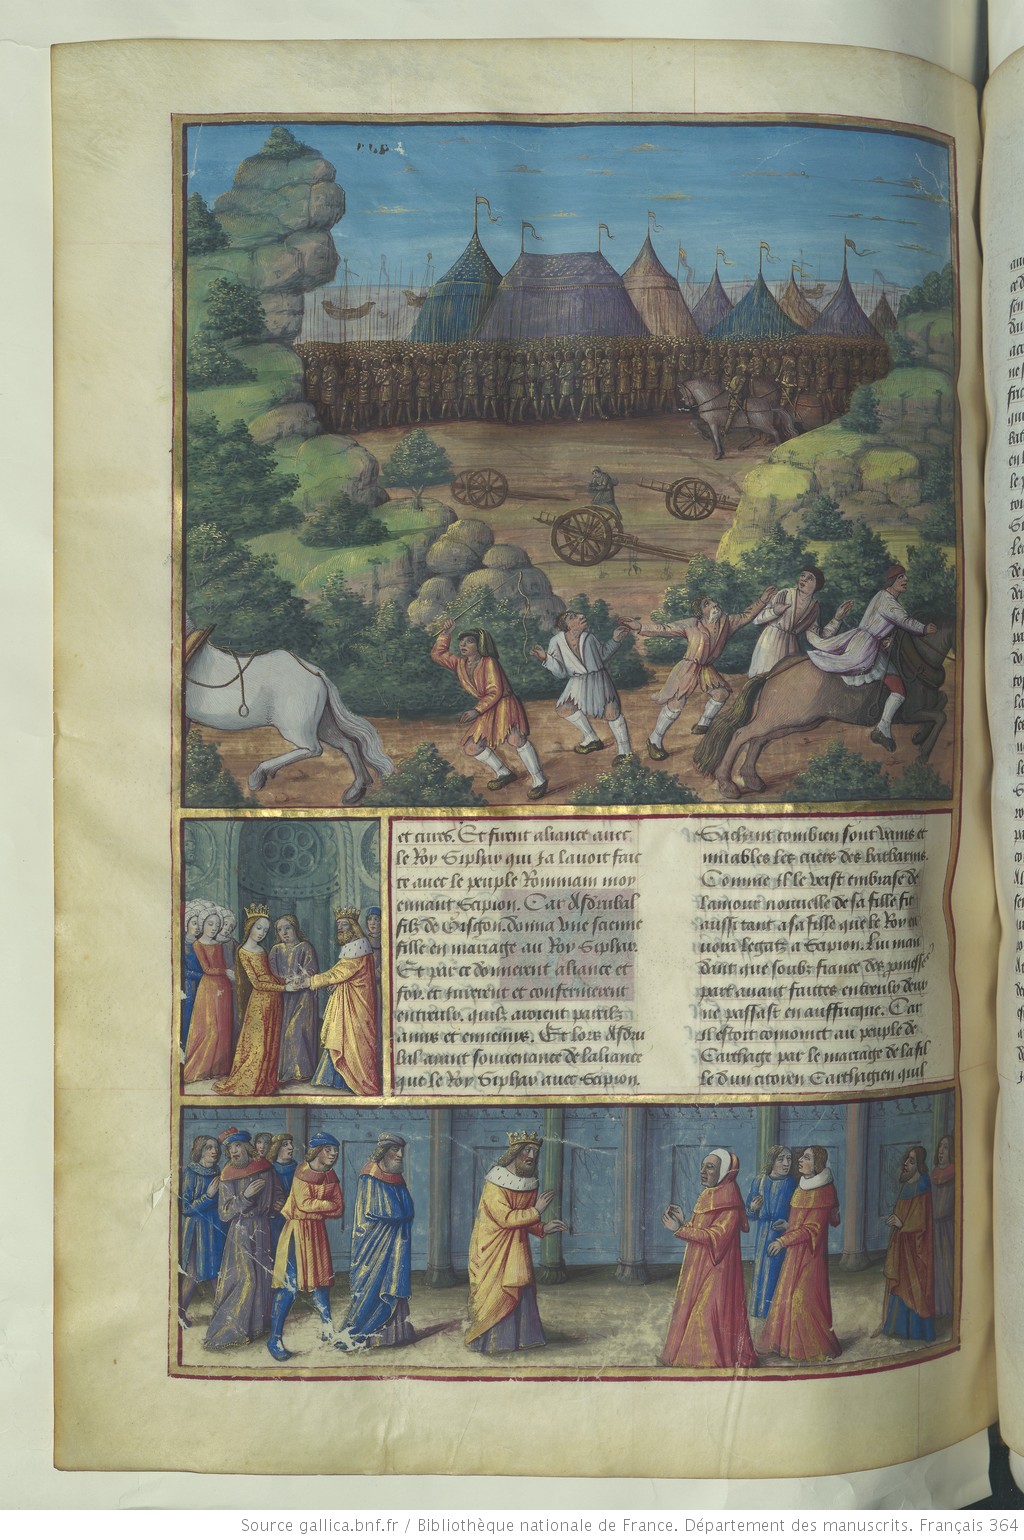 et cures. Et firent aliance avec
le Roy Siphax qui ja lavoit fait
te avec le peuple Rommain moy
ennant Scipion. Car Asdrubal
filz de Gisgon. donna une sienne
fille en mariage au Roy Siphax.
Et par ce donnerent aliance et
foy. et jurerent et confermerent
entreulx. quilz avoient pareilz
amis et ennemis. Et lors Asdru
bal ayant souvenance de laliance
que le Roy Siphax avec Scipion.
Sachant combien sont vains et
muables les cuers des barbarins.
Comme il le veist embrase de
lamour nouvelle de sa fille fit
aussi tant a sa fille que le Roy en
voia legatz a Scipion. Lui man
dant que soubz fiance des
par avant faittes entreulx deux
ne passast en auffricque. Car
il estoit comoint au peuple de
Carthage par le mariage de la fil
le dun citoyen Carthagien quil
Source gallica.bnf.fr / Bibliothèque nationale de France. Département des manuscrits. Français 364